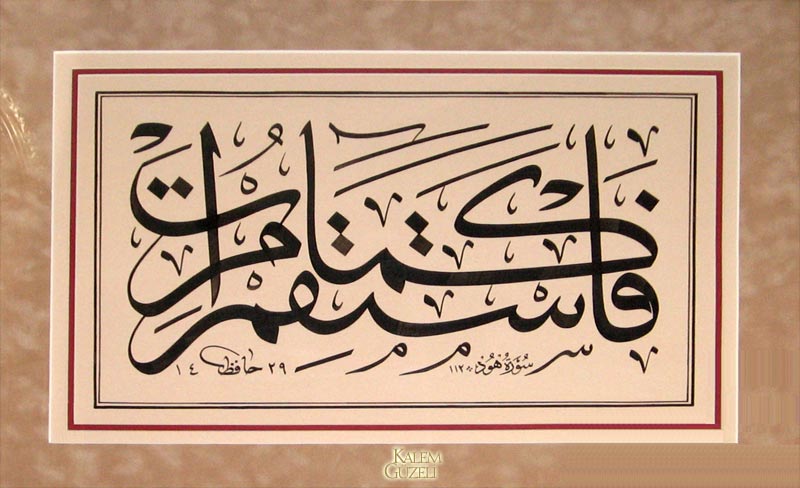 فَاسْتَقِمْ كَمَا أُمِرْتَ
سُورَةُ هُود ١١٢
حافظ ١٤٢٩
KALEM GÜZELİ